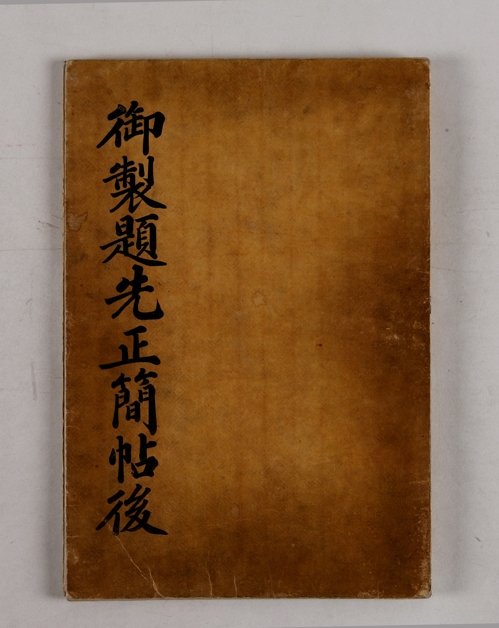 御製題先正簡帖後